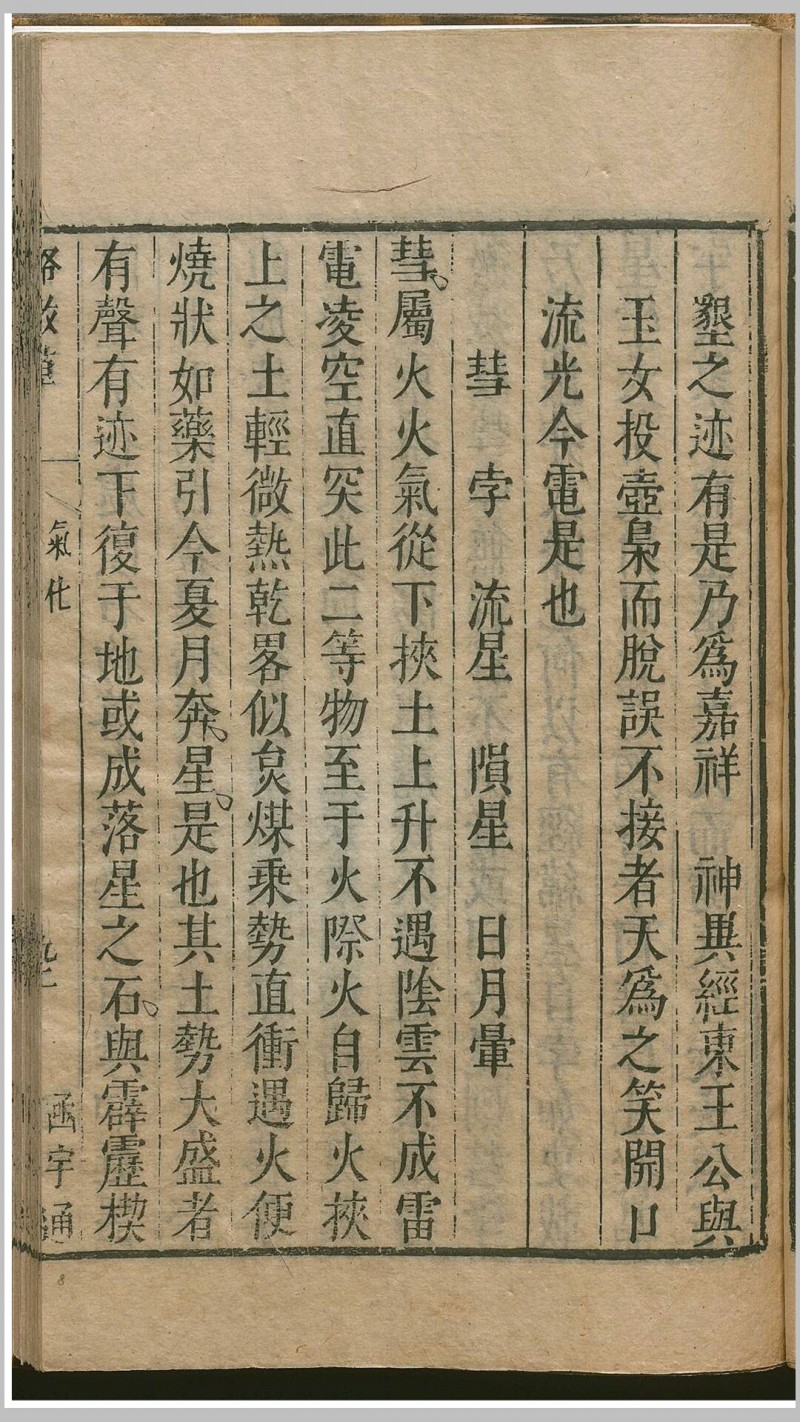 墾之迹有是乃爲嘉祥　神異經東王公與
玉女投壺梟而脫誤不接者天爲之笑開口
流光今電是也
彗　孛　流星　隕星　日月暈
彗屬火火氣從下挾土上升不遇陰雲不成雷
電凌空直突此二等物至于火際火自歸火挾
上之土輕微熱乾畧似炱煤乘勢直衝遇火便
燒狀如藥引今夏月奔星是也其土勢大盛者
有聲有迹下復于地或成落星之石與霹靂楔
格致草　氣化　函宇通
8